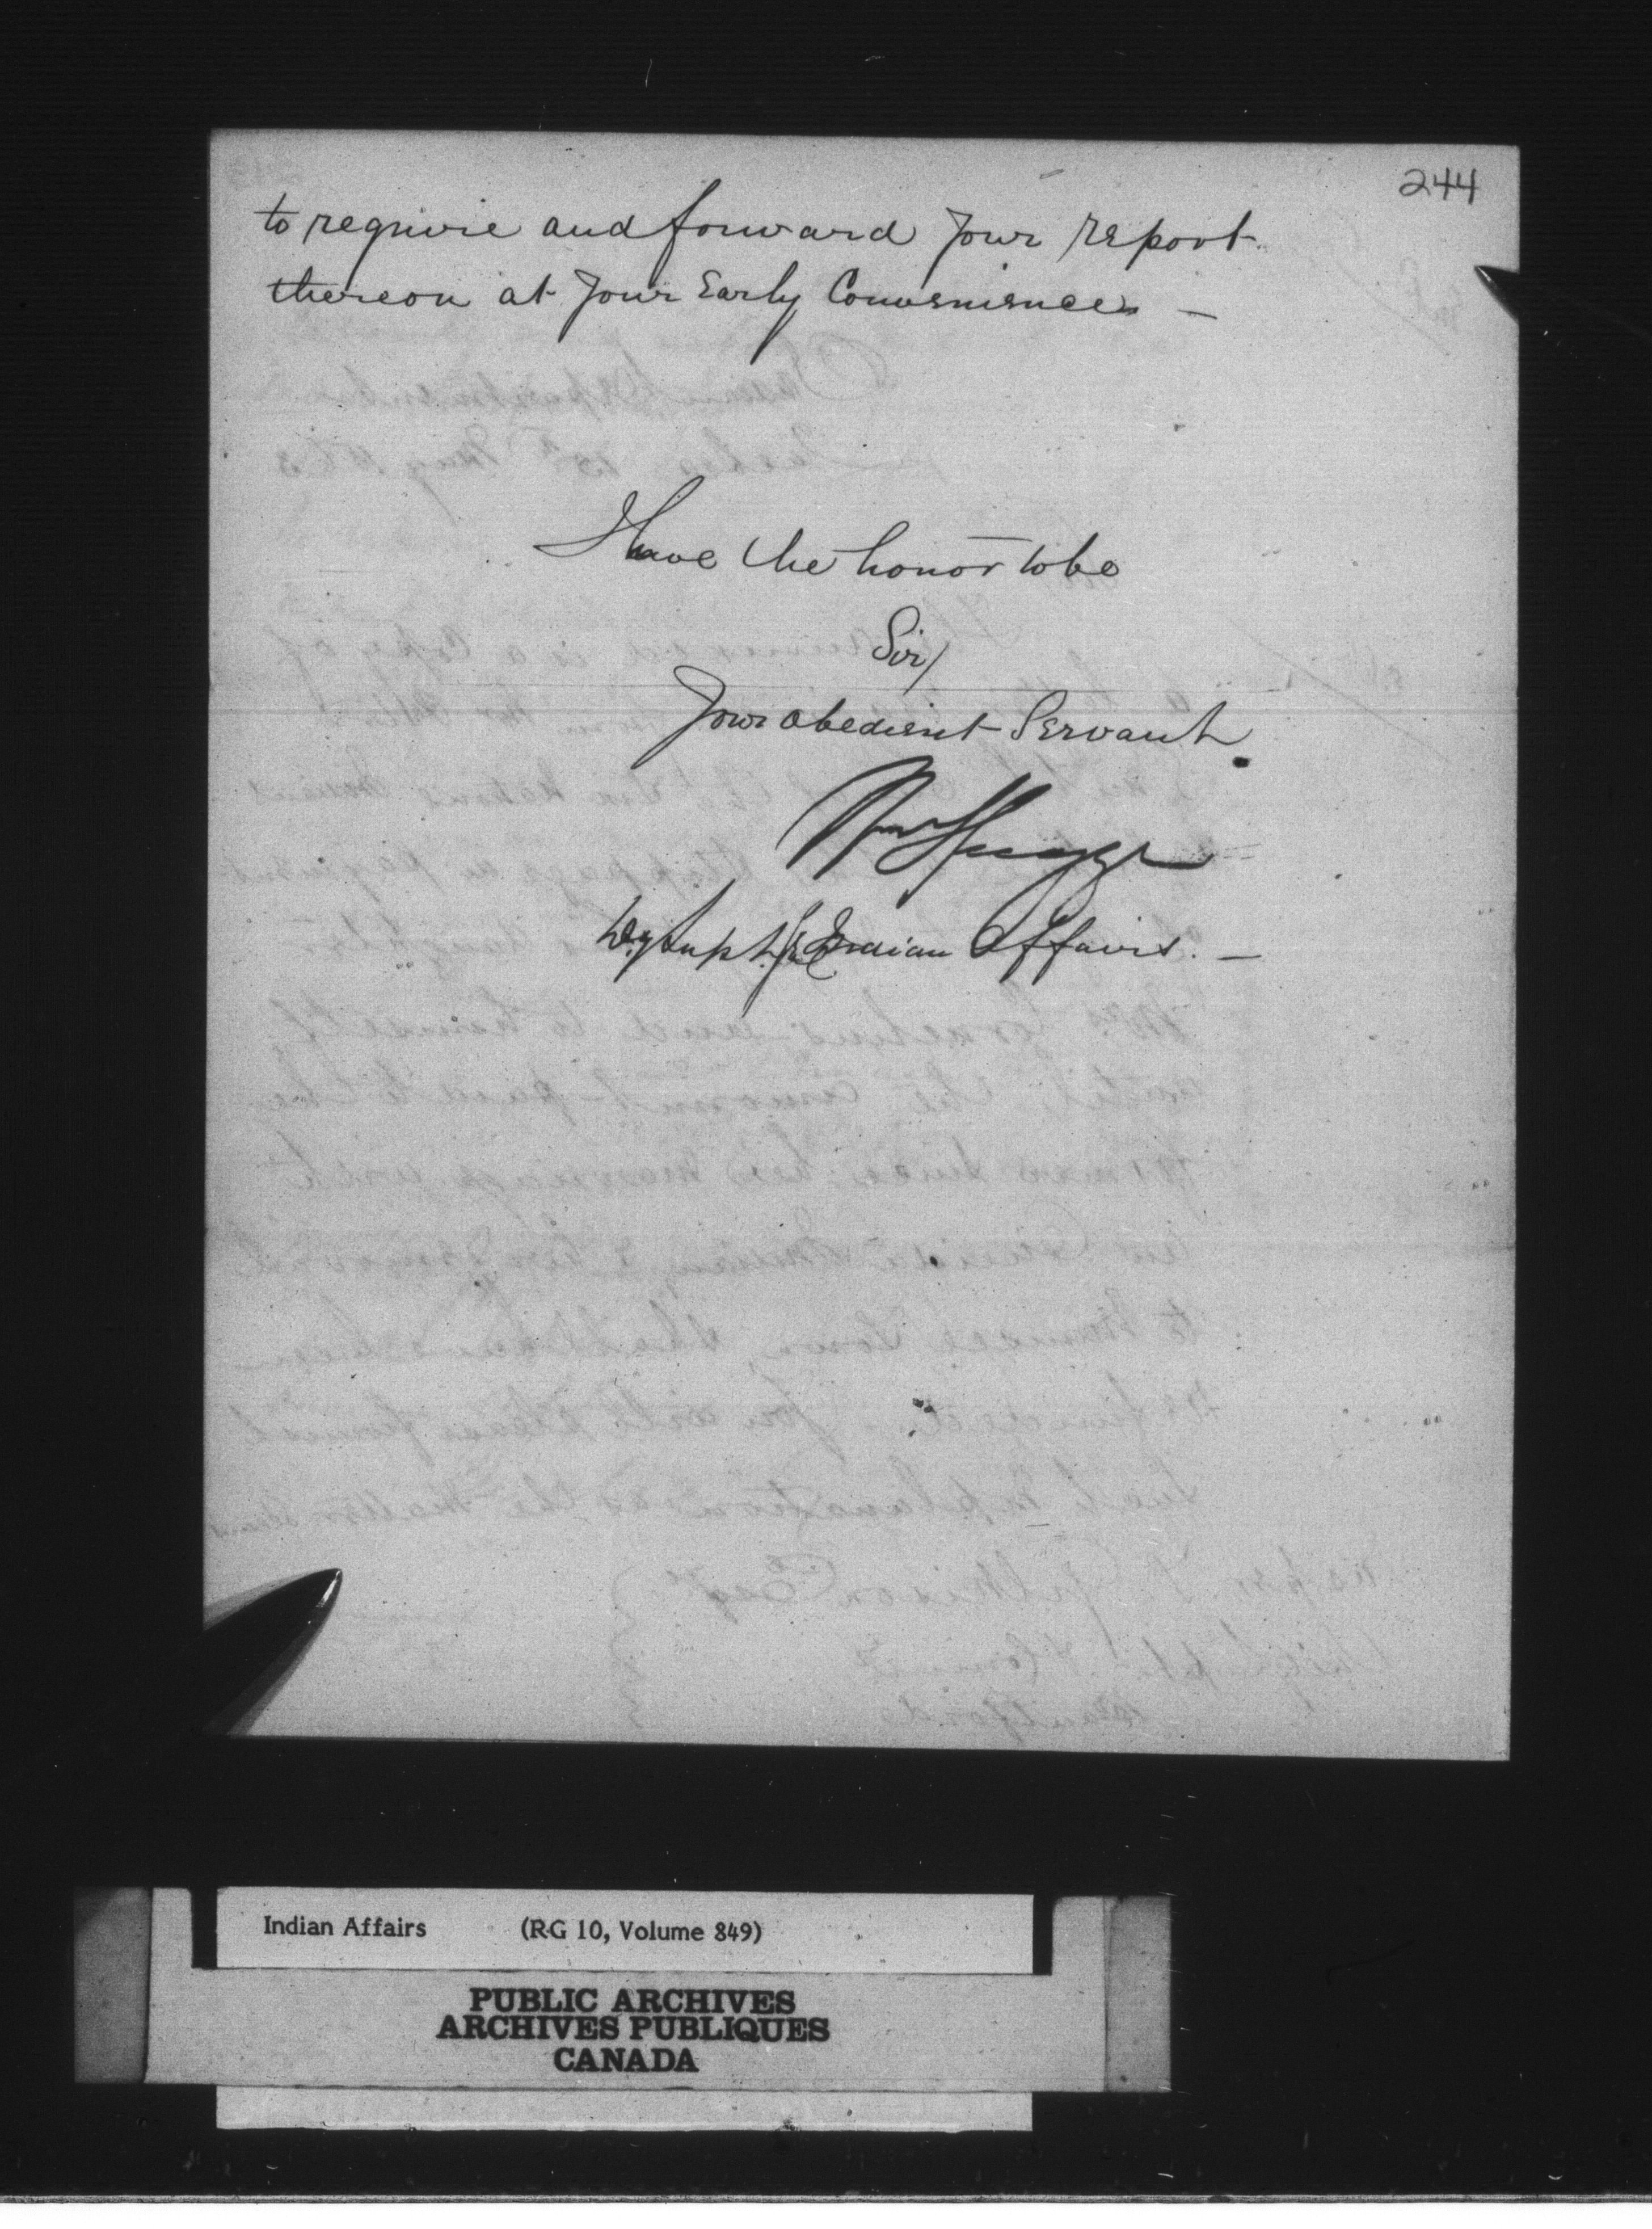 244
to require and forward your report
thereon at your Early Convenience —
I have the honor to be
Sir/
Your obedient Servant
Dy Supt Indian Affairs. —
Indian Affairs (RG 10, Volume 849)
PUBLIC ARCHIVES
ARCHIVES PUBLIQUES
CANADA